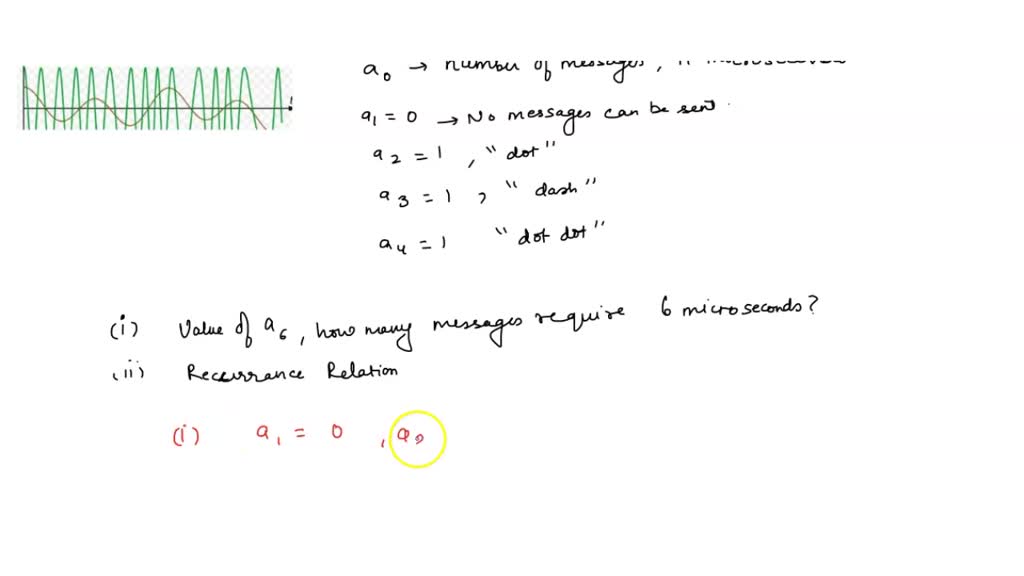 a0 → number of messages,
a1 = 0 → No messages can be sent.
a2 = 1 , "dot"
a3 = 1 , "dash"
a4 = 1 "dot dot"
(i) Value of a6, how many messages require 6 microseconds?
(ii) Reccurrance Relation
(i) a1 = 0 , a